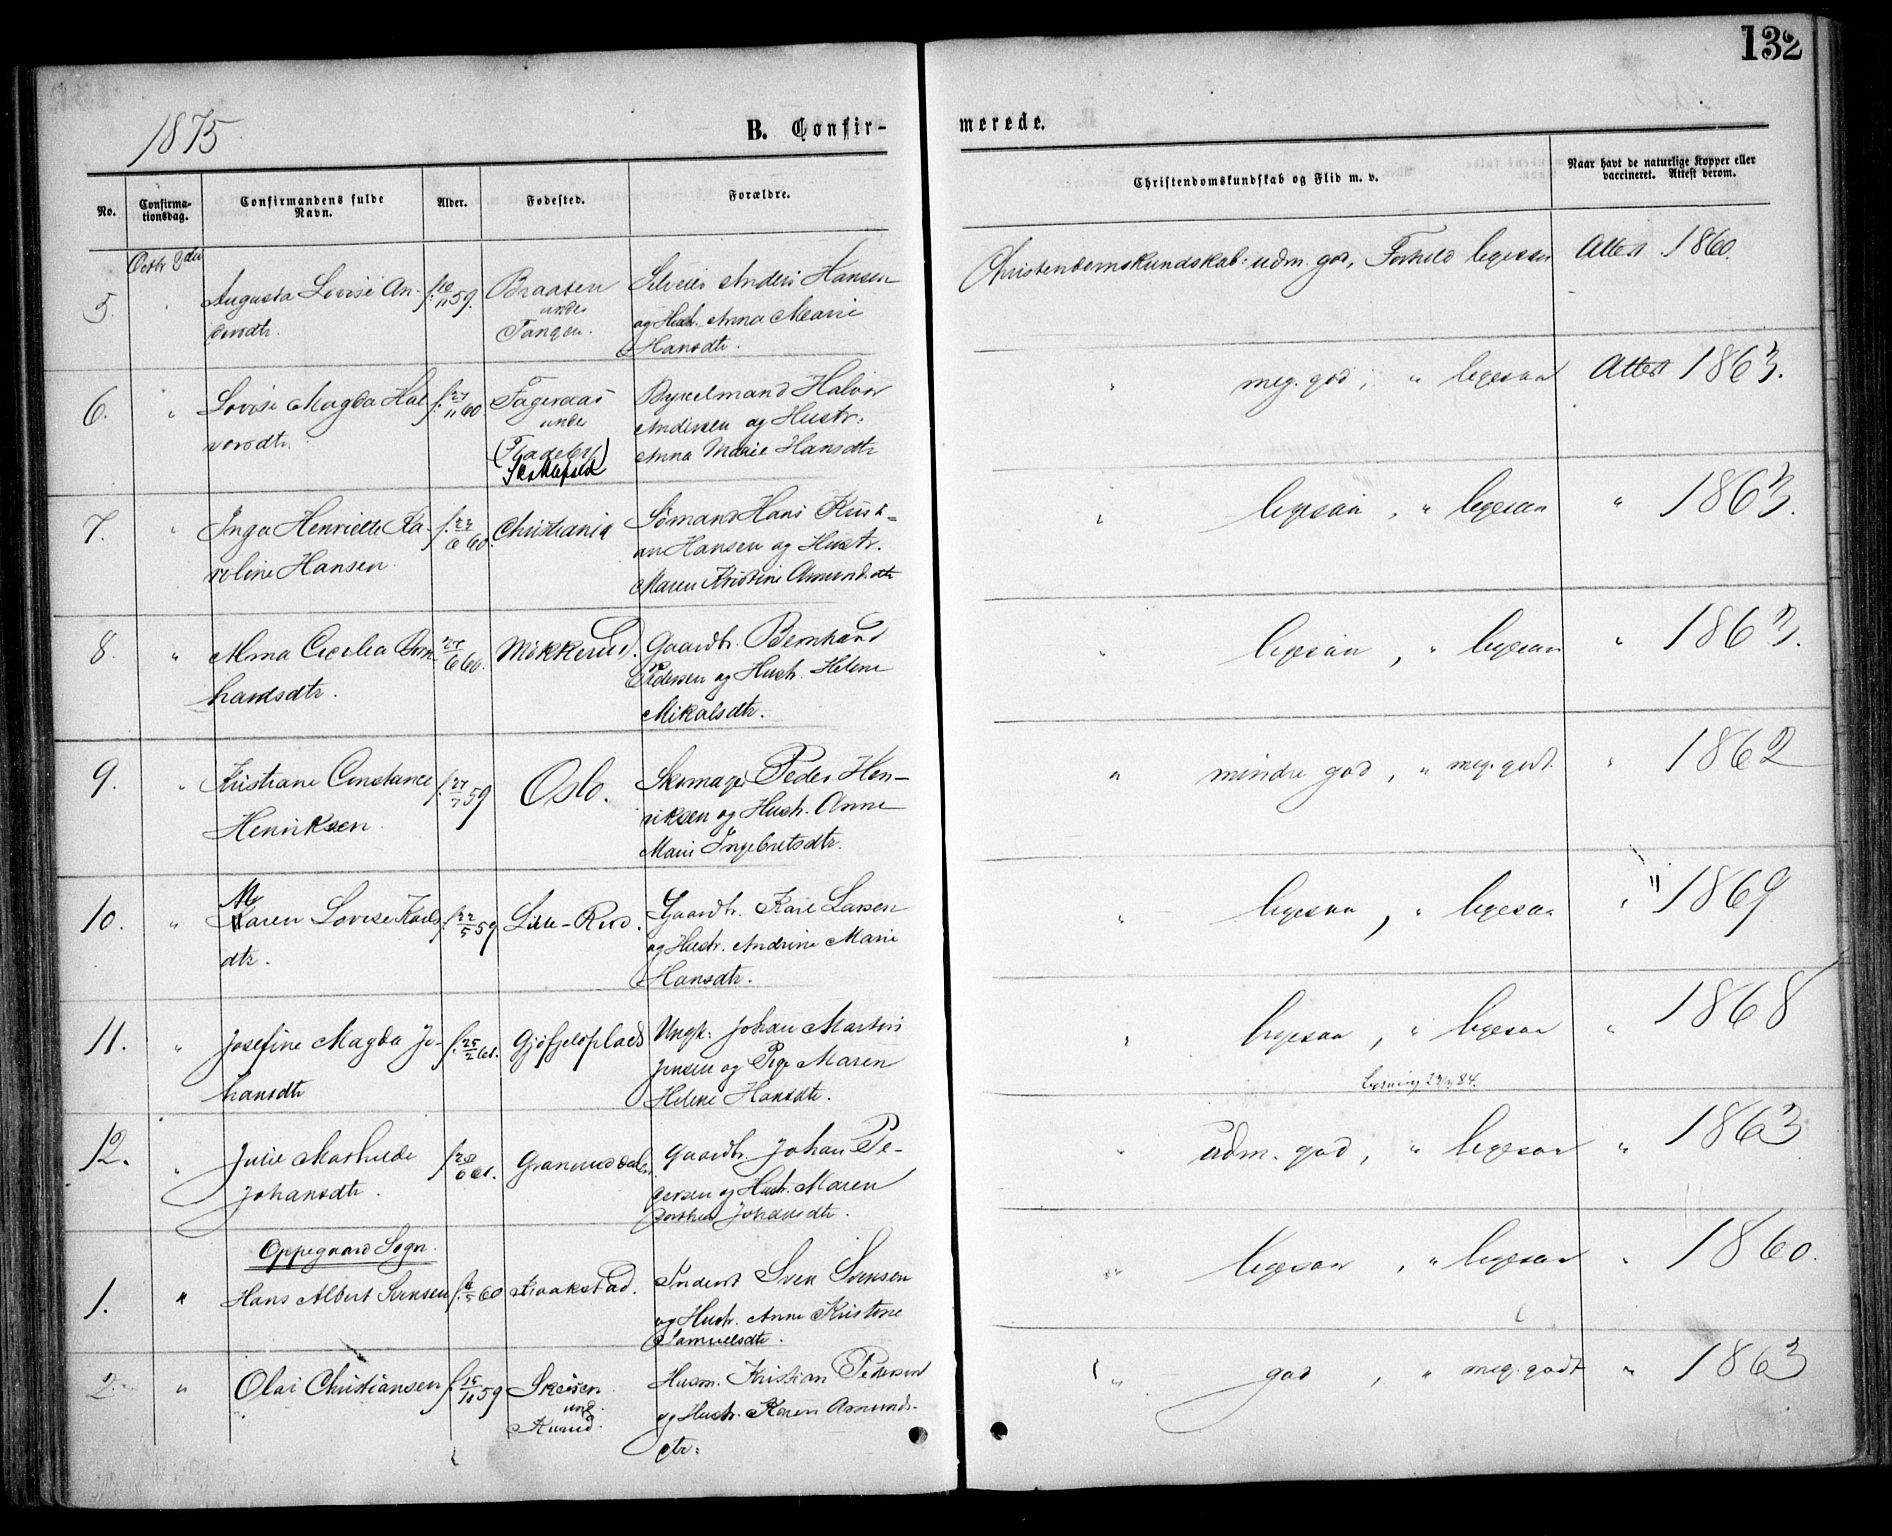 132
1875
B. Confir-
merede.
No.
Confirma-
tionsdag.
Confirmandens fulde
Navn.
Alder.
Fødested.
Forældre.
Christendomskundskab og Flid m. v.
Naar havt de naturlige Kopper eller
vaccineret. Attest derom.
Octbr 3die
5.
Augusta Lovise An-
dersdtr.
f. 10/11 59.
Braaten
under
Tangen.
Anders Hansen
og Hustr. Anna Marie
Hansdtr.
Christendomskundskab: udm. god, Forhold ligesaa
Attest 1860.
6.
"
Lovise Magda Hal
vorsdtr.
f. 27/11 60
Fageraas
under
(Fladeby)
Byxelmand Halvor
Andersen og Hustr.
Anna Marie Hansdtr
" meg. god, " ligesaa
Attest 1863.
7.
"
Inga Henriette Ka-
roline Hansen.
f. 22/6 60.
Christiania
Sømand Hans Kristi-
an Hansen og Hustr.
Maren Kristine Amundsdtr
" ligesaa, " ligesaa
" 1863.
8.
"
Alma Cecilia Bern
hardsdtr.
27/6 60.
Mikkerud.
Gaardbr. Bernhard
Pedersen og Hustr. Helene
Mikalsdtr.
" ligesaa, " ligesaa
" 1863.
9.
"
Kristiane Constance
Henriksen.
f. 27/7 59
Oslo.
Skomager Peder Hen-
riksen og Hustr. Anne
Marie Ingebretsdtr.
" mindre god, " meg. godt.
" 1862
10.
"
M
Karen Lovise Karls
dtr.
f. 22/5 59
Lille-Rud.
Gaardbr. Karl Larsen
og Hustr. Andrine Marie
Hansdtr.
" ligesaa, " ligesaa
" 1869
11.
"
Josefine Magda Jo-
hansdtr
f. 25/2 61.
Gjøfjeldplads
Ungk: Johan Martin
Jensen og Pige Maren
Helene Hansdtr.
" ligesaa, " ligesaa
" 1868
12.
"
Julie Mathilde
Johansdtr.
Granerudsdalen
Gaardbr. Johan Pe-
dersen og Hustr. Maren
Dorthea Johansdtr.
" udm. god, " ligesaa
" 1863
Oppegaard Sogn.
1.
"
Hans Albert Svensen
Kraakstad.
Inderst Sven Svensen
og Hustr. Anne Kristine
Samuelsdtr.
" ligesaa, " ligesaa
" 1860.
2.
"
Olai Christiansen
f. 15/10 59
Skeisen
und.
Husm. Kristian Pedersen
og Hustr. Karen Amunds-
dtr.
" god, " meg. godt
" 1863